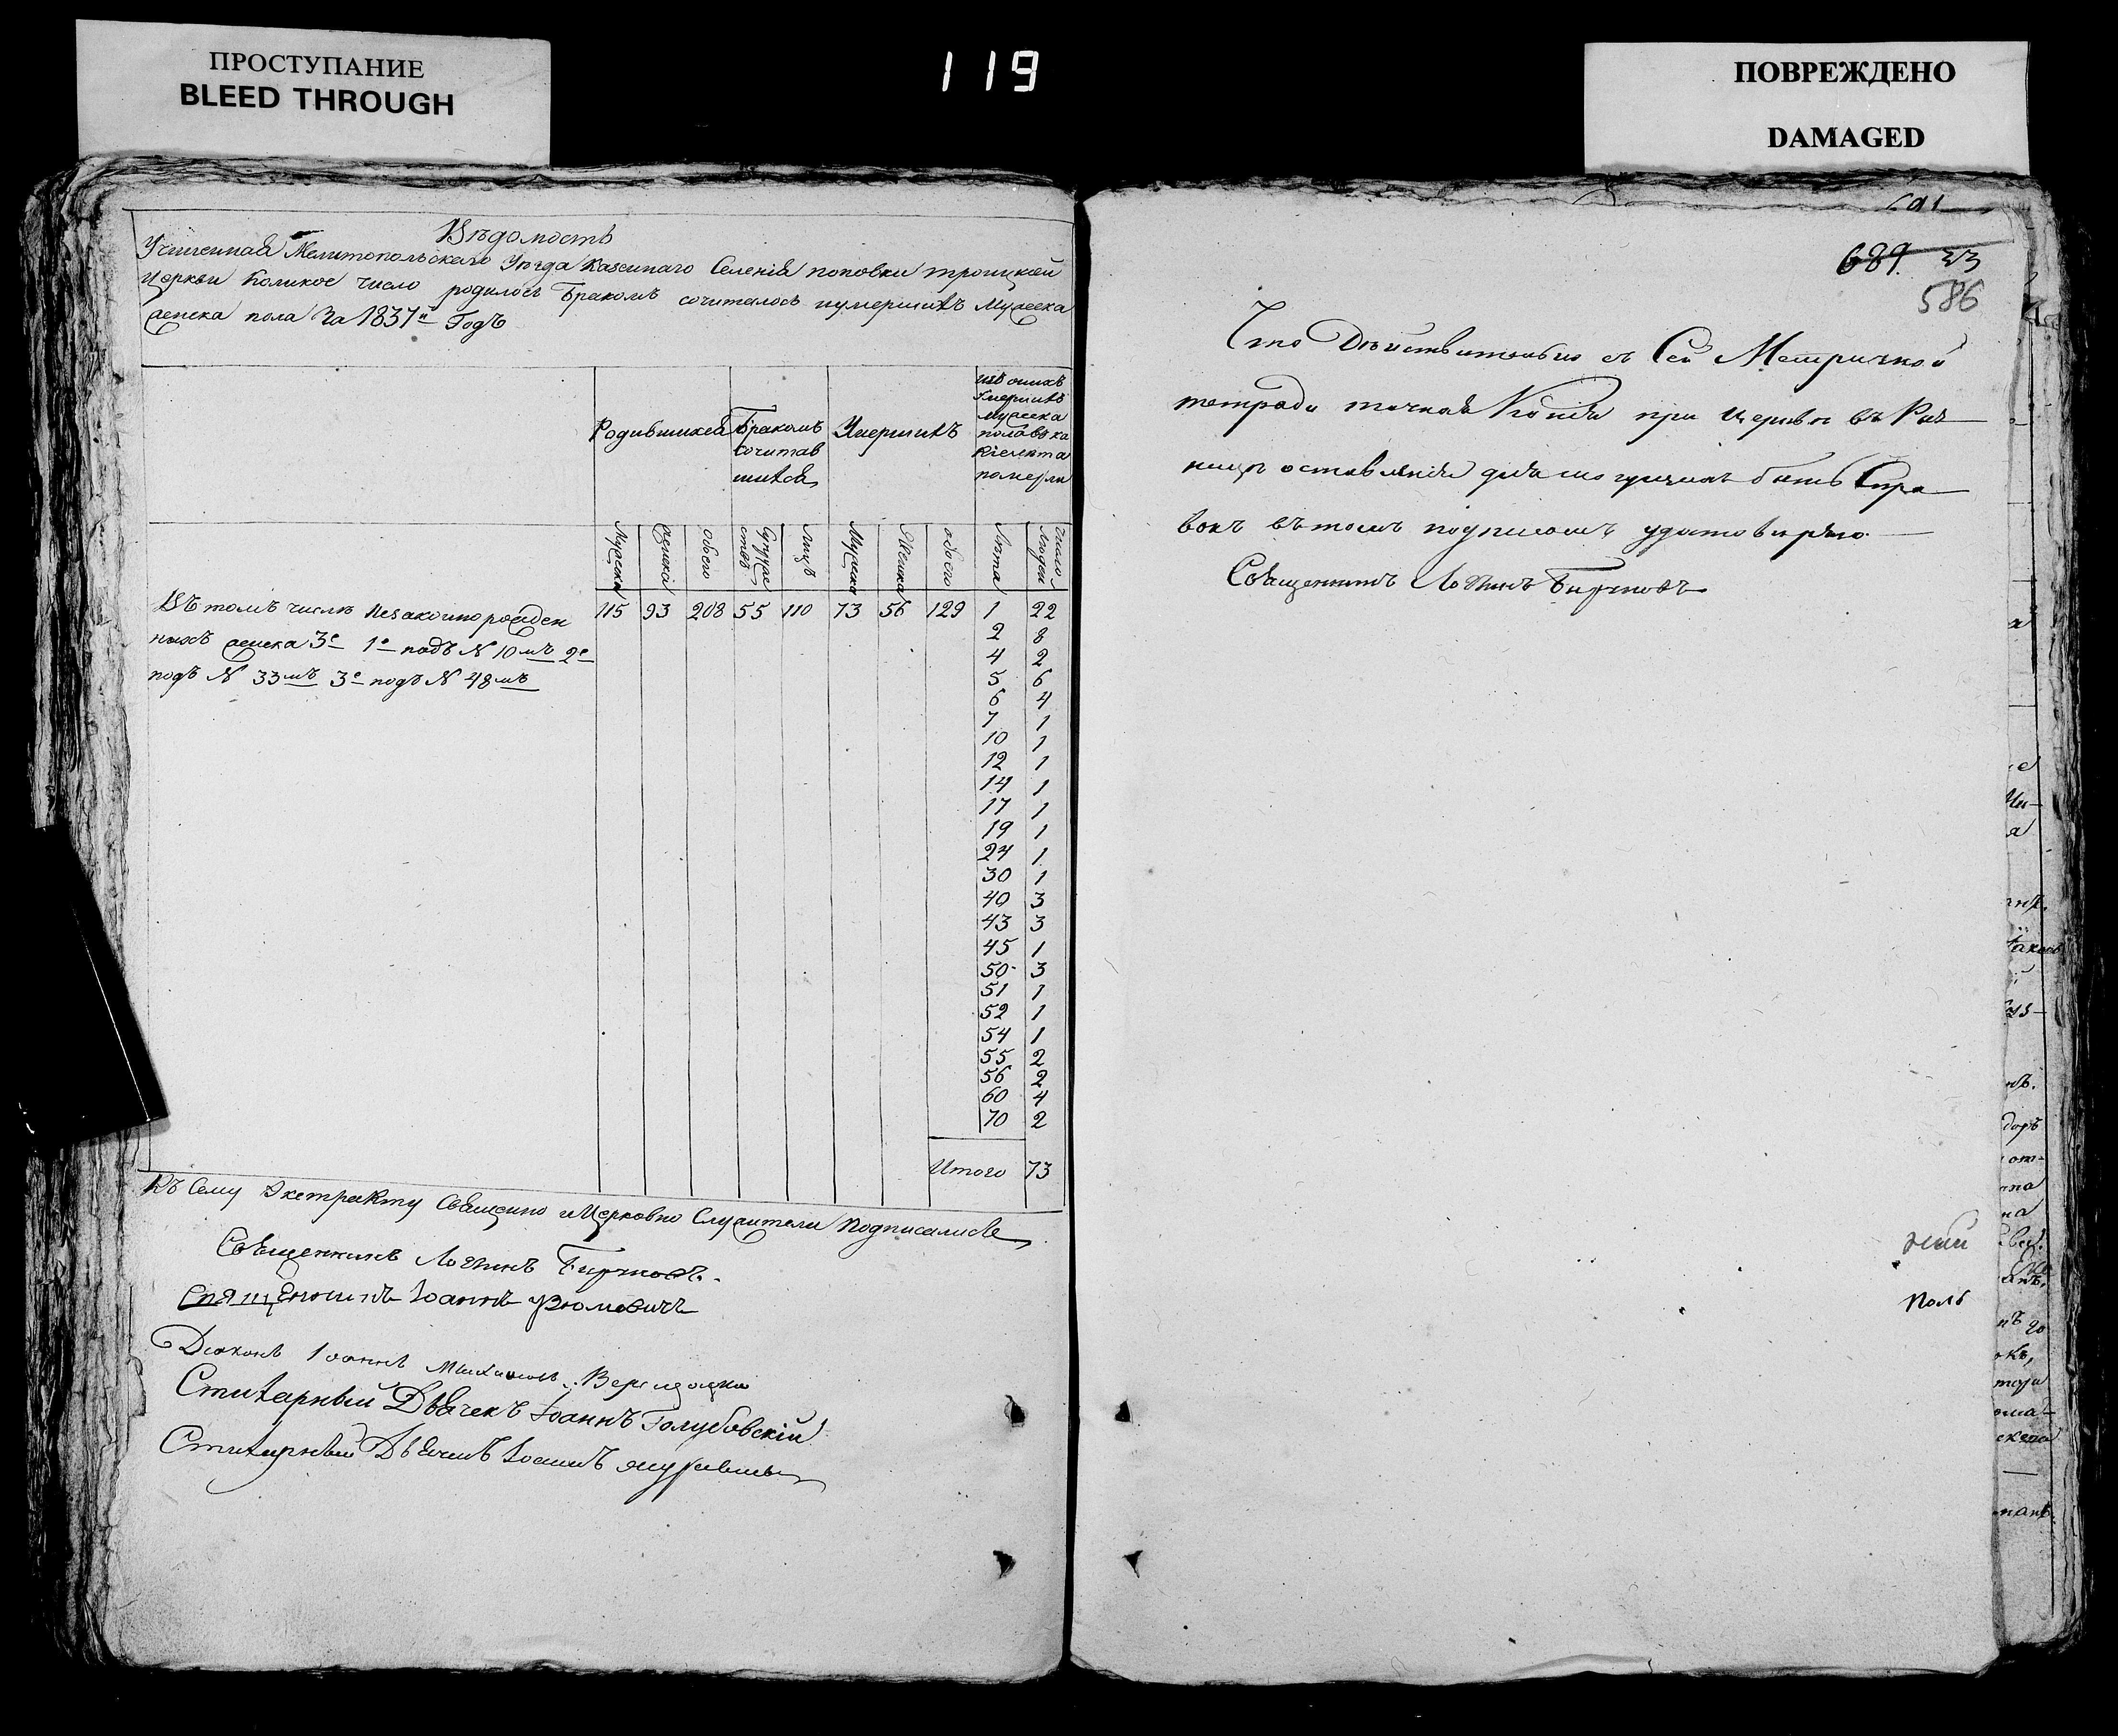 ПРОСТУПАНИЕ
BLEED THROUGH
119
ПОВРЕЖДЕНО
DAMAGED
Вѣдомость
Учиненная Мелитопольскаго Уѣзда Казеннаго Селенія поповки троицкой
Церкви Коликое число родилось Бракомъ сочиталось иумершихъ Мужеска
женска пола За 1837й Годъ
Родившихся
Бракомъ
Сочитав
шихся
Умершихъ
изъ оныхъ
Умершихъ
мужеска
пола
померли
Мужеска
Женска
обоего
Супружес
ствъ
Лицъ
Мужеска
Женска
обоего
Лѣта
Число
людей
Въ томъ числѣ незаконорожден
ныхъ женска 3е 1е подъ N 10мъ 2е
подъ N 33мъ 3е подъ N 48мъ
115 93 208 55 110 73 56 129 1 22
2 8
4 2
5 6
6 4
7 1
10 1
12 1
14 1
17 1
19 1
24 1
30 1
40 3
43 3
45 1
50 3
51 1
52 1
54 1
55 2
56 2
60 4
70 2
Итого 73
Къ Сему Экстракту Священно иЦерковно Служители Подписались
Священникъ Логгинъ
Священникъ Іоаннъ
Діаконъ Іоаннъ
Стихарный Дьячекъ Іоаннъ Голубовскій
Стихарный Дьячекъ Іоаннъ
691
689. 33
586
Что Дѣйствительно съ Сей Метричной
тетради точная Копія при церкви въ Риз
ницѣ оставлена для могущихъ быть Спра
вокъ въ томъ подписомъ удостовѣряю.
Священникъ Логгинъ
Поль